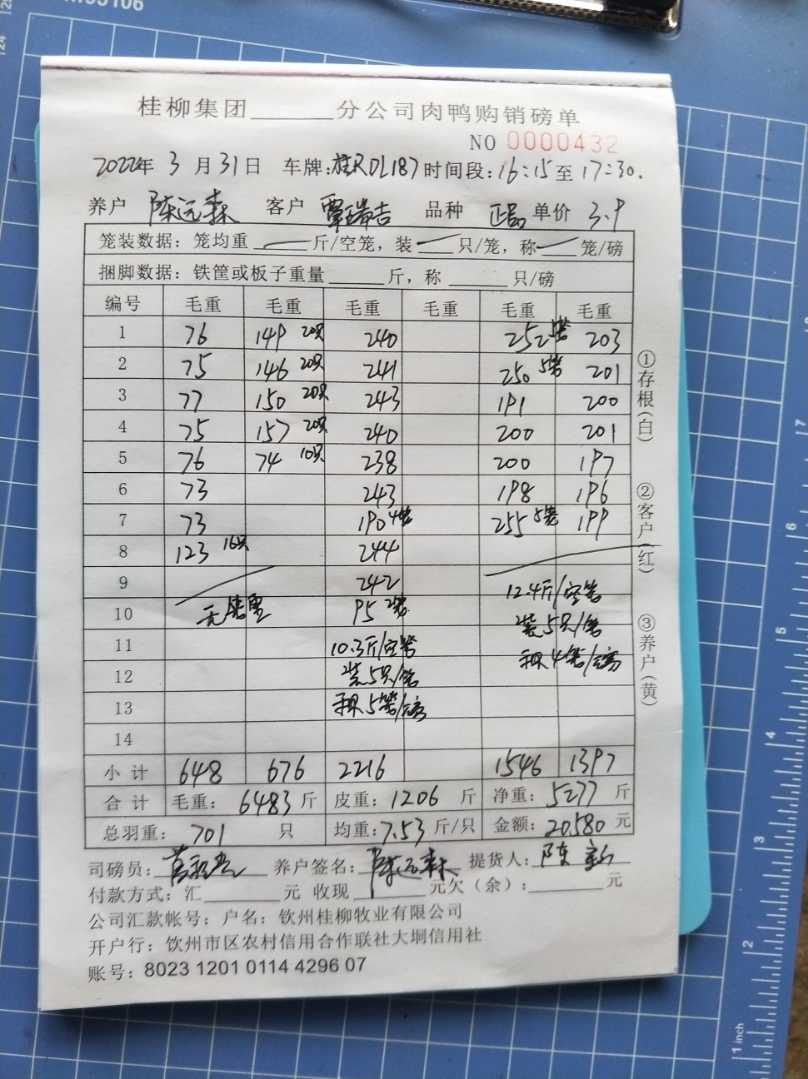 桂柳集团______分公司肉鸭购销磅单
NO 0000432
2022年 3 月 31 日 车牌:桂RDL187 时间段:16:15至17:30.
养户 陈远森 客户 覃瑞吉 品种 正品 单价 3.9
笼装数据:笼均重____斤/空笼,装___只/笼,称___笼/磅
捆脚数据:铁筐或板子重量_____斤,称_____只/磅
编号 毛重 毛重 毛重 毛重 毛重 毛重
1 76 149 20只 240 252 5笼 203
2 75 146 20只 241 250 5笼 201
3 77 150 20只 243 191 200
4 75 157 20只 240 200 201
5 76 74 10只 238 200 197
6 73 243 198 196
7 73 190 4笼 255 5笼 199
8 123 16只 244
9 242 12.4斤/空笼
10 95 2笼 装5只/笼
11 10.3斤/空笼 称4笼/磅
12 装5只/笼
13 称5笼/磅
14
小计 648 676 2216 1546 1397
合计 毛重: 6483 斤 皮重: 1206 斤 净重: 5277 斤
总羽重: 701 只 均重: 7.53 斤/只 金额: 20580 元
司磅员: 养户签名: 陈远森 提货人:
付款方式:汇______元 收现______元欠(余):______元
公司汇款帐号:户名:钦州桂柳牧业有限公司
开户行:饮州市区农村信用合作联社大垌信用社
账号:8023 1201 0114 4296 07
①存根(白)
②客户(红)
③养户(黄)
1 inch
2
3
4
5
6
7